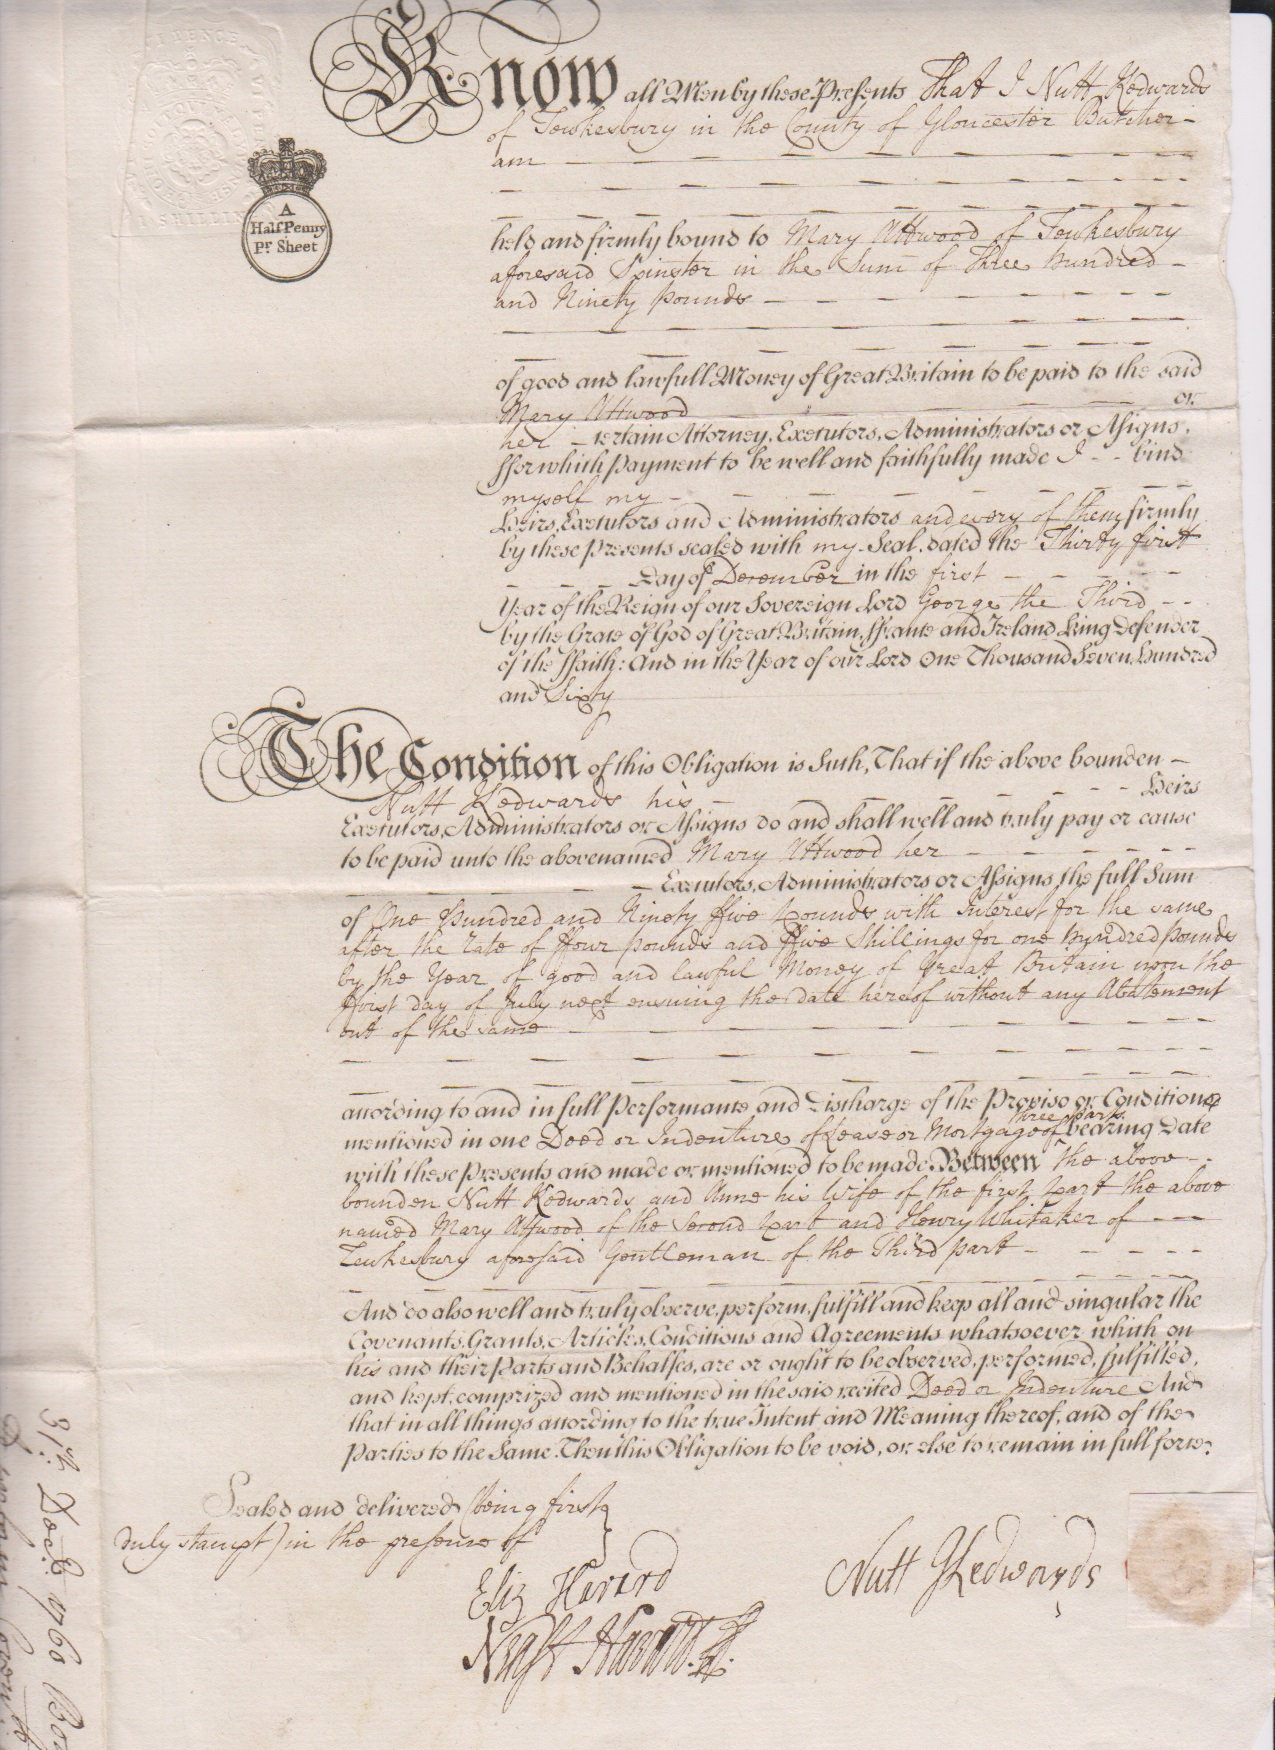 PENCE
SHILLIN
A
Half Penny
Pr. Sheet
Know all Men by these Presents That I Nutt Kedwards
of Tewkesbury in the County of Gloucester Butcher -
am
held and firmly bound to Mary Attwood of Tewkesbury
aforesaid Spinster in the Sum of Three hundred -
and Ninety pounds -
of good and lawfull Money of Great Britain to be paid to the said
Mary Attwood or
her - certain Attorney, Executors, Administrators or Assigns,
ffor which Payment to be well and faithfully made I - - bind
myself my -
Heirs, Executors and Administrators and every of them firmly
by these Presents sealed with my Seal. dated the Thirty first
Day of December in the first
Year of the Reign of our Sovereign Lord George the Third - -
by the Grace of God of Great Britain, ffrance and Ireland King Defender
of the ffaith: And in the Year of our Lord One Thousand Seven Hundred
and Sixty
The Condition of this Obligation is Such, That if the above bounden -
Nutt Kedwards his - - - Heirs
Executors, Administrators or Assigns do and shall well and truly pay or cause
to be paid unto the abovenamed Mary Attwood her
- Executors, Administrators or Assigns the full Sum
of One Hundred and Ninety ffive pounds with Interest for the same
after the rate of ffour pounds and ffive Shillings for one hundred pounds
by the Year of good and lawful Money of Great Britain upon the
ffirst day of July next ensuing the date hereof without any Abatement
out of the same
according to and in full Performance and Discharge of the Proviso or Condition
three parts
mentioned in one Deed or Indenture of Lease or Mortgage of bearing Date
with these Presents and made or mentioned to be made Between the above - -
bounden Nutt Kedwards and Anne his Wife of the first part the above
named Mary Attwood of the Second part and Henry Whitaker of - - -
Tewkesbury aforesaid Gentleman of the Third part -
And do also well and truly observe, perform, fulfill and keep all and singular the
Covenants, Grants, Articles, Conditions and Agreements whatsoever which on
his and their Parts and Behalfes, are or ought to be observed, performed, fulfilled,
and kept, comprized and mentioned in the said recited Deed or Indenture And
that in all things according to the true Intent and Meaning thereof, and of the
Parties to the Same. Then this Obligation to be void, or else to remain in full force.
Sealed and delivered (being first
duly stampt) in the presence of
Eliz Havard
Nutt Kedwards
31st. Decr. 1760